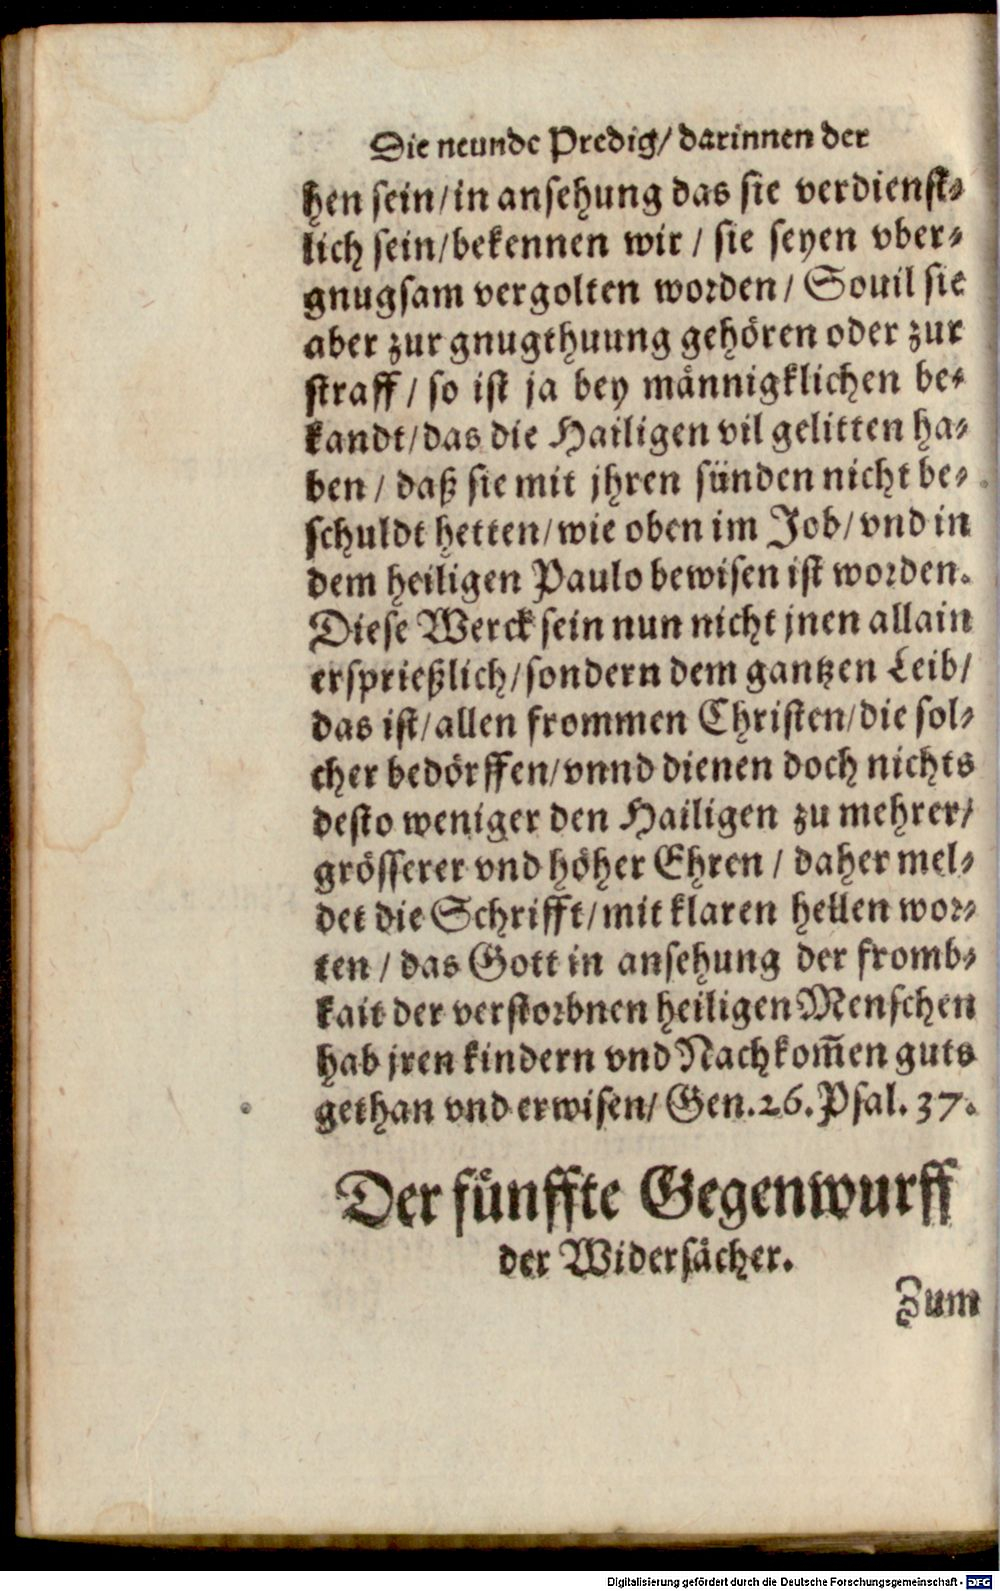 Die neunde Predig/ darinnen der
hen sein/in ansehung das sie verdienst-
lich sein/bekennen wir / sie seyen vber-
gnugsam vergolten worden / Souil sie
aber zur gnugthuung gehören oder zur
straff / so ist ja bey männigklichen be-
kandt/das die Hailigen vil gelitten ha-
ben / daß sie mit jhren sünden nicht be-
schuldt hetten/wie oben im Job/vnd in
dem heiligen Paulo bewisen ist worden.
Diese Werck sein nun nicht jnen allain
ersprießlich/sondern dem gantzen Leib/
das ist/allen frommen Christen/die sol-
cher bedörffen/vnnd dienen doch nichts
desto weniger den Hailigen zu mehrer/
grösserer vnd höher Ehren / daher mel-
det die Schrifft/mit klaren hellen wor-
ten / das Gott in ansehung der fromb-
kait der verstorbnen heiligen Menschen
hab jren kindern vnd Nachkom̅en guts
gethan vnd erwisen/ Gen.26. Psal. 37.
Der fünffte Gegenwurff
der Widersächer.
Zum
Digitalisierung gefördert durch die Deutsche Forschungsgemeinschaft - DFG